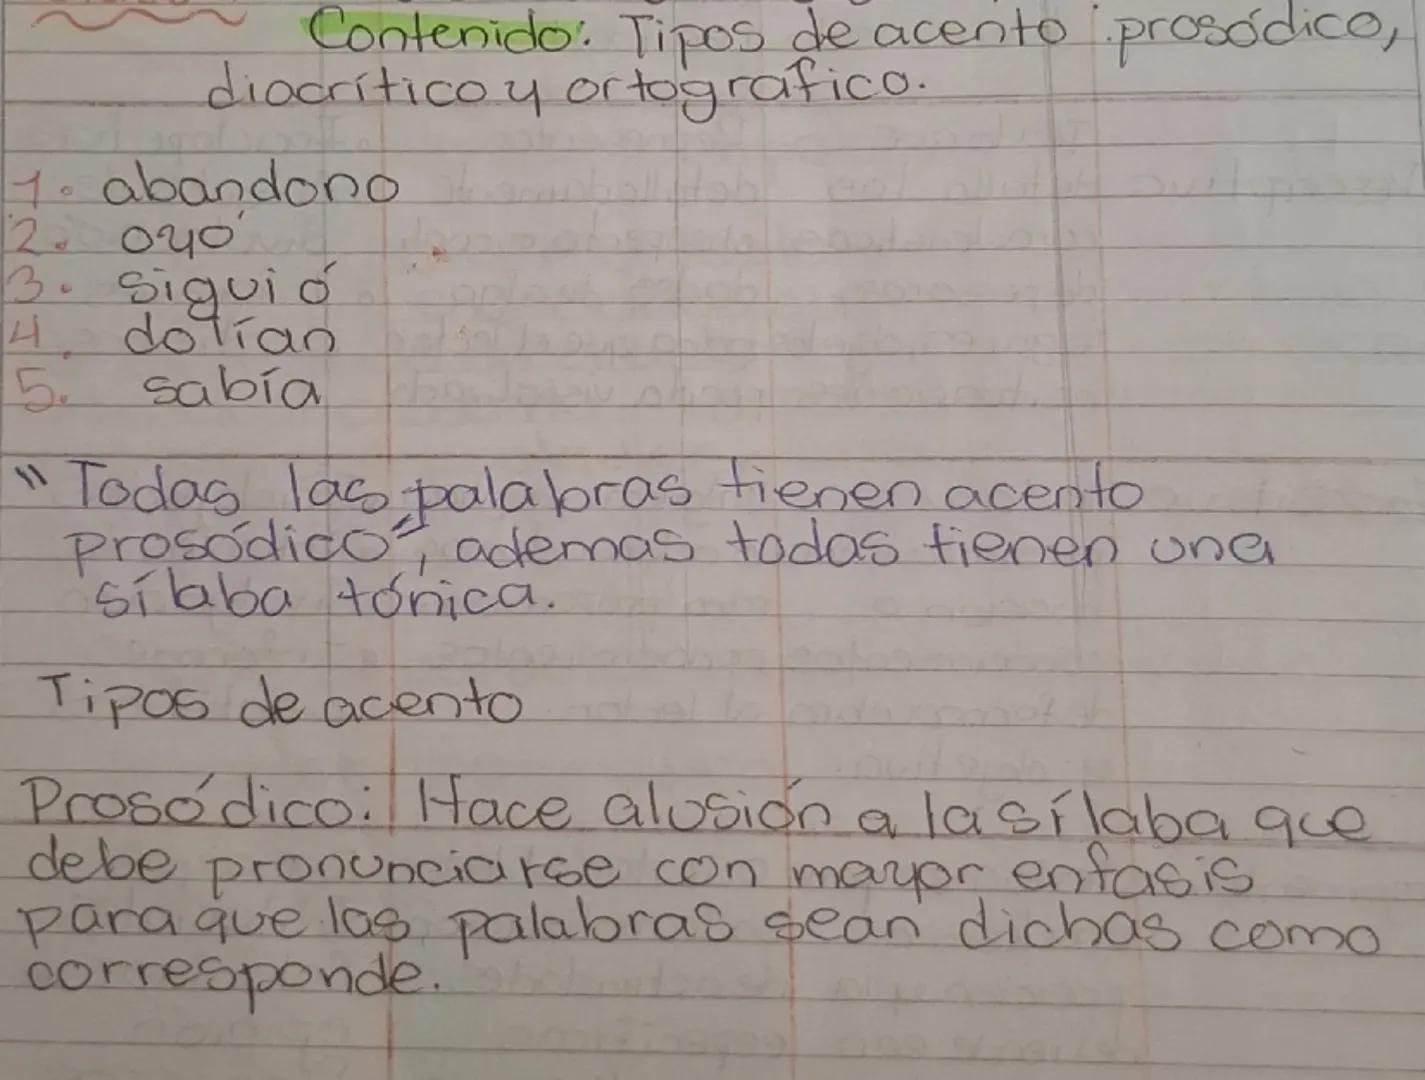 Contenido: Tipos de acento: prosódico,
diacrítico y ortográfico.
1. abandono
2. oyó
3. siguió
4. dolían
5. sabía
"Todas las palabras tienen acento
prosódico", ademas todas tienen una
sílaba tónica.
Tipos de acento
Prosódico: Hace alusión a la sílaba que
debe pronunciarse con mayor enfasis
para que las palabras sean dichas como
corresponde.